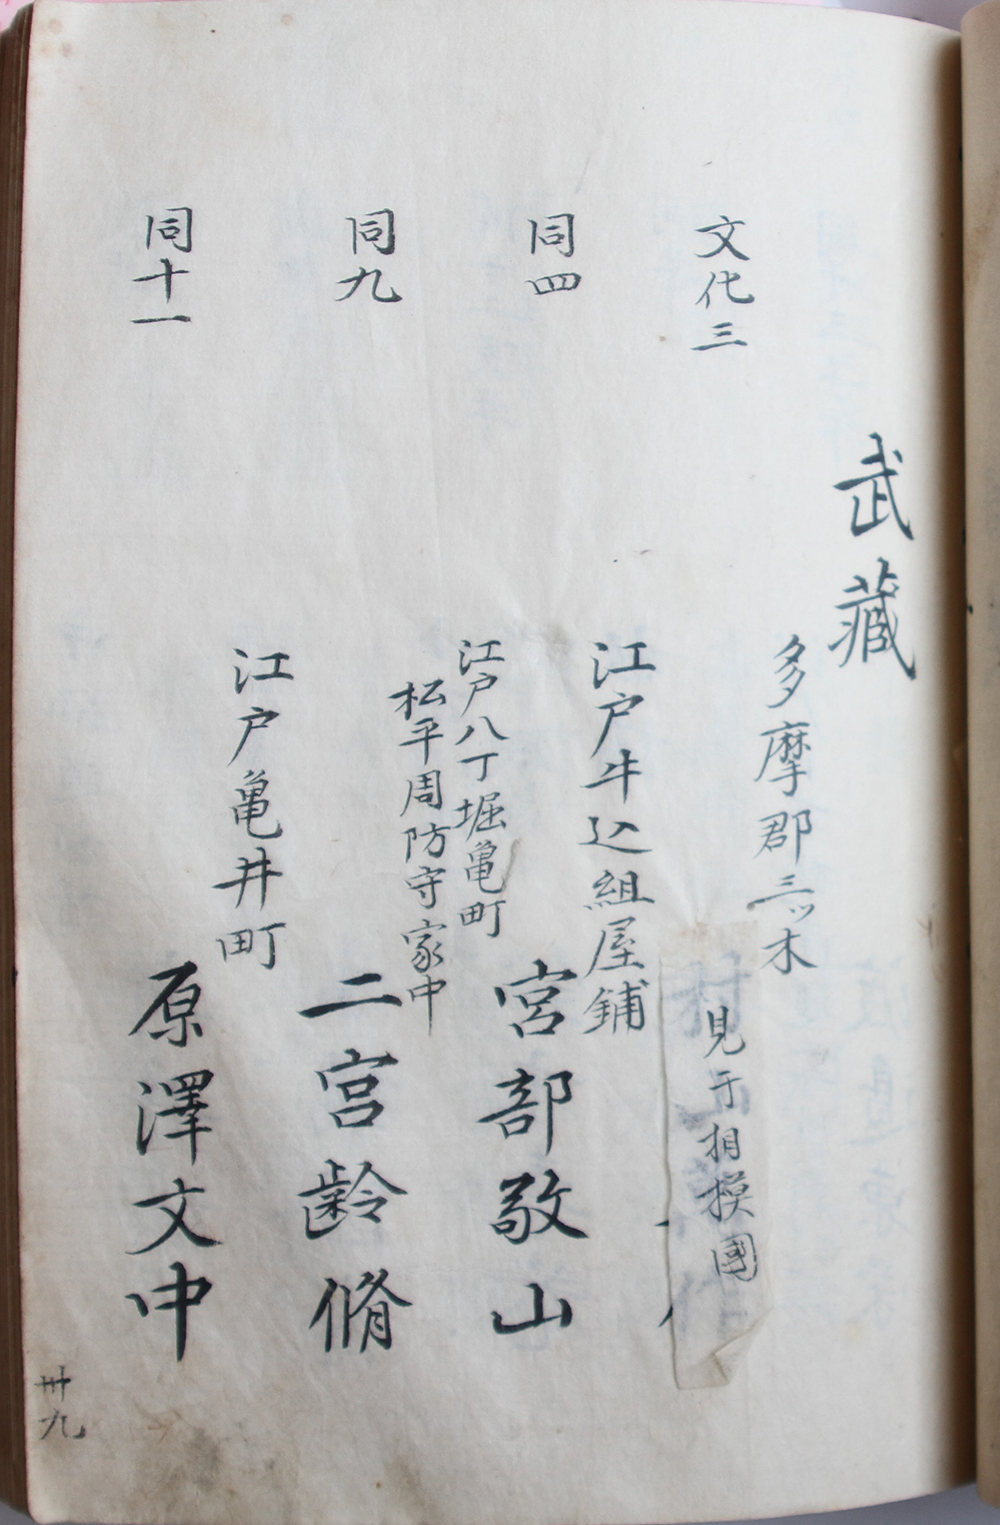 武蔵
文化三
多摩郡三ッ木
見于相摸國
同四
江戸牛込組屋鋪
宮部敬山
同九
江戸八丁堀亀町
松平周防守家中
二宮齢脩
同十一
江戸亀井町
原澤文中
卅九